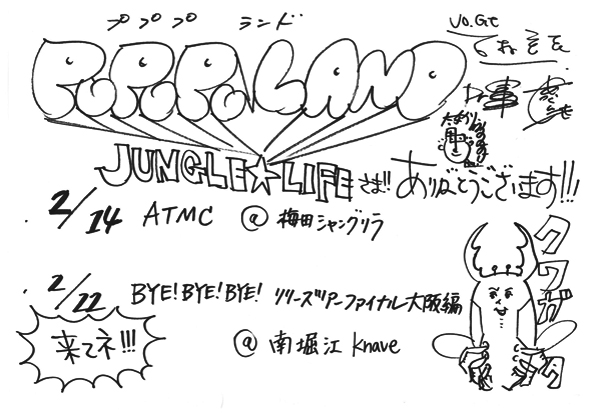 ププププ ランド
P.P.P.P.LAND
Vo.Gt
JUNGLE☆LIFEさま!! ありがとうございます!!!
2/14 ATMC @ 梅田シャングリラ
2/22 BYE!BYE!BYE! リリースツアーファイナル大阪編
@ 南堀江 Knave
来てネ!!!
クワガタ